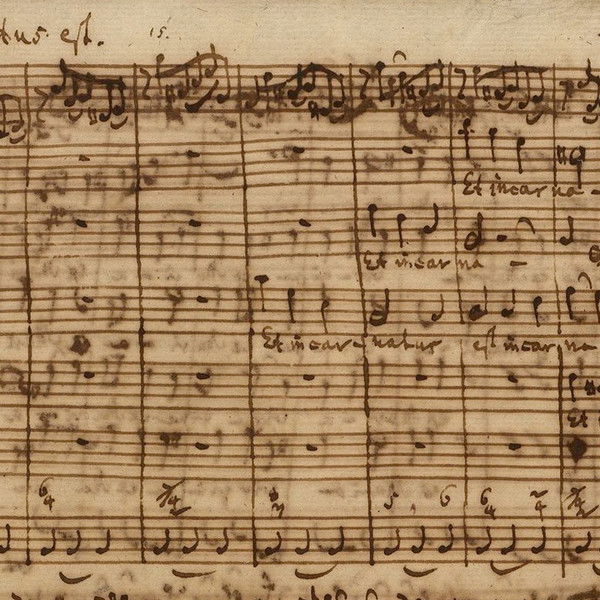 tus est. 15.
Et incarna-
Et incarna -
Et incarnatus est incarna
Et
6 4 7 4 5 6 6 4